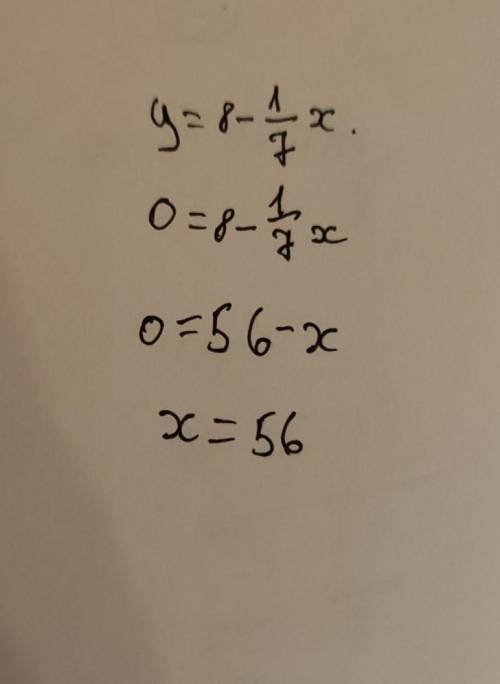 y = 8 - 1/7 x.
0 = 8 - 1/7 x
0 = 56 - x
x = 56